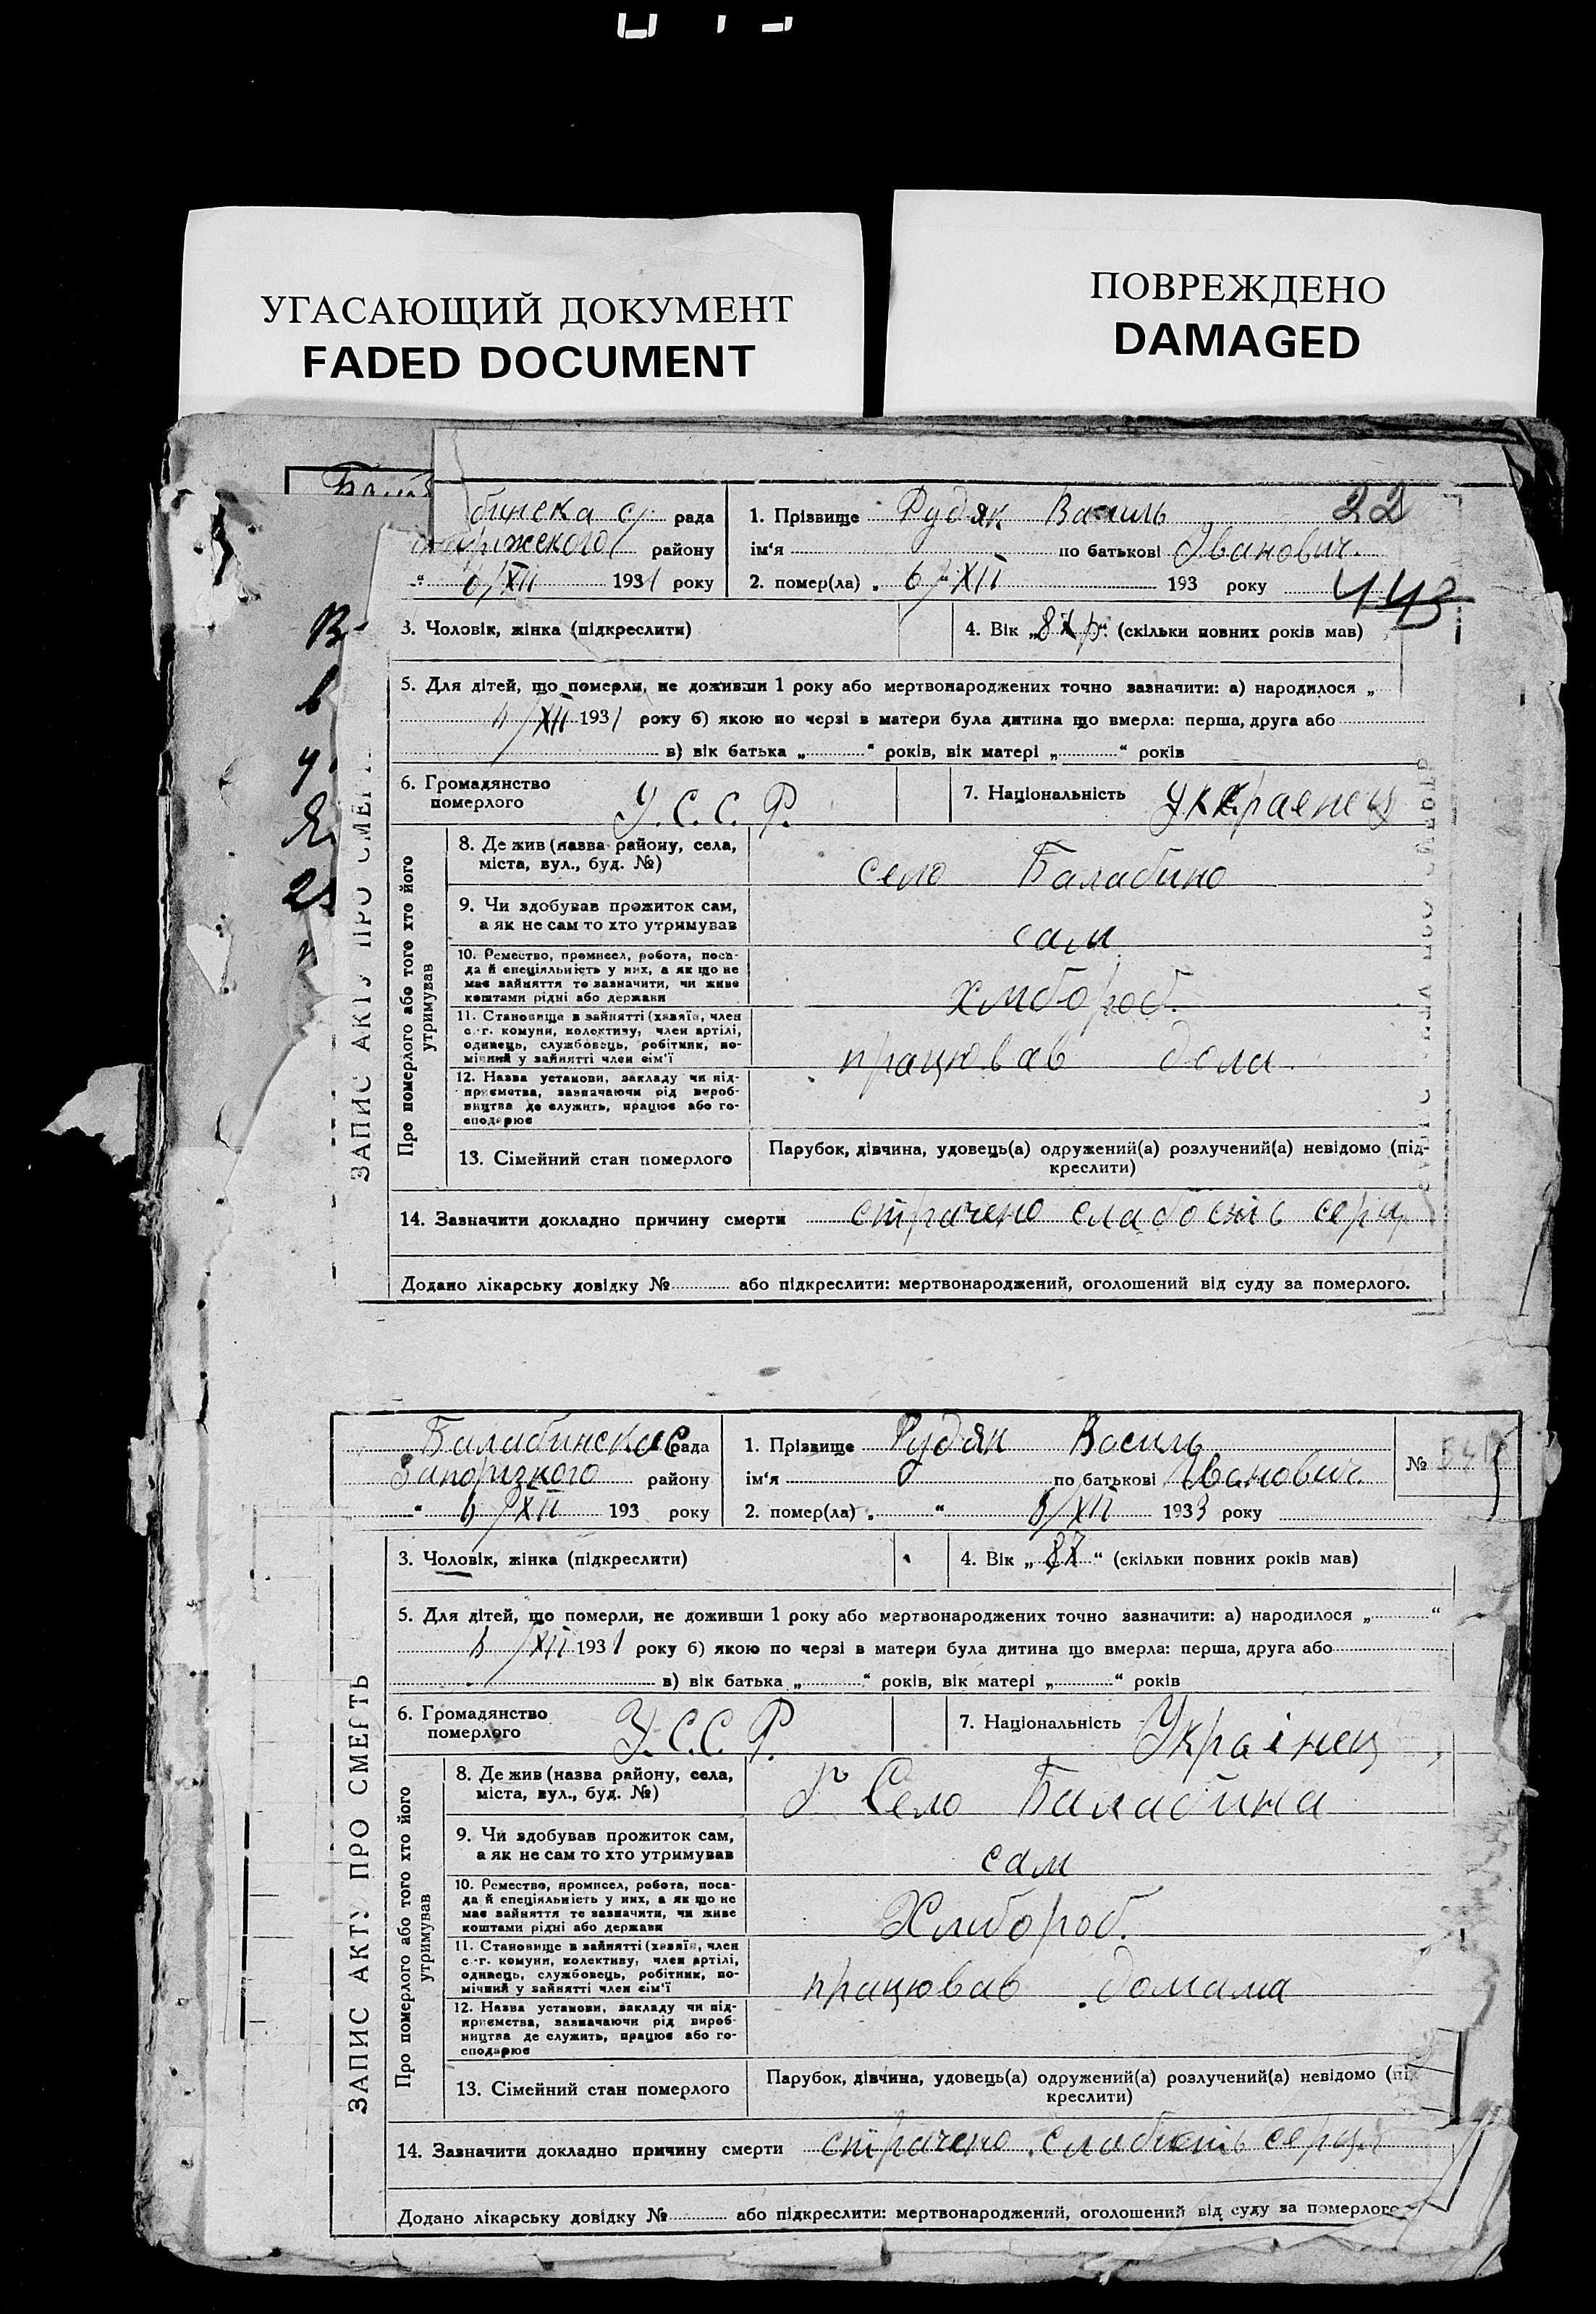 УГАСАЮЩИЙ ДОКУМЕНТ
FADED DOCUMENT
ПОВРЕЖДЕНО
DAMAGED
бинска с/ рада
району
" 6/XII 1931 року
1. Прізвище Рудяк Василь 22
ім'я по батькові Іванович.
2. помер(ла) „ 6/XII 193 року 443
3. Чоловік, жінка (підкреслити)
4. Вік „ " (скільки повних років мав)
5. Для дітей, що померли, не доживши 1 року або мертвонароджених точно зазначити: а) народилося „
/XII 1931 року б) якою по черзі в матери була дитина що вмерла: перша, друга або
в) вік батька „ " років, вік матері „ " років
6. Громадянство
померлого
У.С.С.Р.
7. Національність Украенец
ЗАПИС АКТУ ПРО СМЕР
Про померлого або того хто його
утримував
8. Де жив (назва району, села,
міста, вул., буд. №)
село Балабино
9. Чи здобував прожиток сам,
а як не сам то хто утримував
сам
10. Ремество, промисел, робота, поса-
да й спеціяльність у них, а як що не
має зайняття то зазначити, чи живе
коштами рідні або держави
хлібороб.
11. Становище в зайнятті (хазяїн, член
с.-г. комуни, колективу, член артілі,
одинець, службовець, робітник, по-
мічний у зайнятті член сім'ї
працював дома
12. Назва установи, закладу чи під-
приємства, зазначаючи рід вироб-
ництва де служить, працює або го-
сподарює
13. Сімейний стан померлого
Парубок, дівчина, удовець(а) одружений(а) розлучений(а) невідомо (під-
креслити)
14. Зазначити докладно причину смерти страчено слабость серц
Додано лікарську довідку № або підкреслити: мертвонароджений, оголошений від суду за померлого.
Балабинска с рада
Запоризкого району
" /XII 193 року
1. Прізвище Рудяк Василь
ім'я по батькові Іванович
2. помер(ла) „ " /XII 1933 року
№
3. Чоловік, жінка (підкреслити)
4. Вік „ 87 " (скільки повних років мав)
5. Для дітей, що померли, не доживши 1 року або мертвонароджених точно зазначити: а) народилося „ "
/XII 1931 року б) якою по черзі в матери була дитина що вмерла: перша, друга або
в) вік батька „ " років, вік матері „ " років
6. Громадянство
померлого
У.С.С.Р.
7. Національність Українец
ЗАПИС АКТУ ПРО СМЕРТЬ
Про померлого або того хто його
утримував
8. Де жив (назва району, села,
міста, вул., буд. №)
Село Балабина
9. Чи здобував прожиток сам,
а як не сам то хто утримував
сам
10. Ремество, промисел, робота, поса-
да й спеціяльність у них, а як що не
має зайняття то зазначити, чи живе
коштами рідні або держави
Хлібороб.
11. Становище в зайнятті (хазяїн, член
с.-г. комуни, колективу, член артілі,
одинець, службовець, робітник, по-
мічний у зайнятті член сім'ї
працював домама
12. Назва установи, закладу чи під-
приємства, зазначаючи рід вироб-
ництва де служить, працює або го-
сподарює
13. Сімейний стан померлого
Парубок, дівчина, удовець(а) одружений(а) розлучений(а) невідомо (пі
креслити)
14. Зазначити докладно причину смерти страчено слабість серця
Додано лікарську довідку № або підкреслити: мертвонароджений, оголошений від суду за померлого